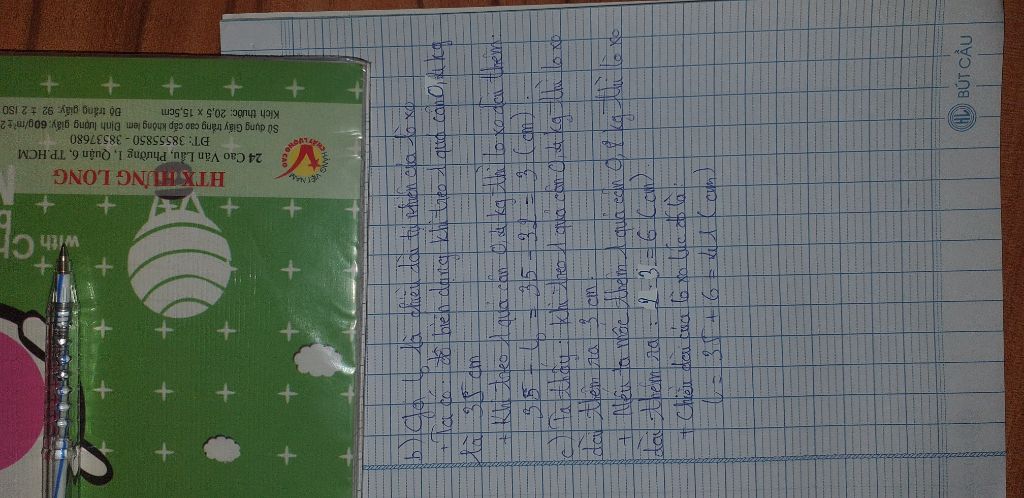 b) Gọi l₀ là chiều dài tự nhiên của lò xo
+ Ta có: độ biến dạng khi treo 1 quả cân 0,4 kg
là 35 cm
+ Khi treo 1 quả cân 0,4 kg thì lò xo dài thêm:
35 - l₀ = 35 - 32 = 3 (cm)
c) Ta thấy: khi treo 1 quả cân 0,4 kg thì lò xo
dài thêm ra 3 cm.
+ Nếu ta móc thêm 1 quả cân 0,8 kg thì lò xo
dài thêm ra: 2.3 = 6 (cm)
+ Chiều dài của lò xo lúc đó là:
l = 35 + 6 = 41 (cm)
BÚT CẦU
HTX HƯNG LONG
24 Cao Văn Lầu, Phường 1, Quận 6, TP.HCM
ĐT: 38555850 - 38537680
Sử dụng Giấy trắng cao cấp không lem Định lượng giấy: 60g/m²±2
Kích thước: 20,5 x 15,5cm Độ trắng giấy: 92 ± 2 ISO
HÀNG VIỆT NAM
CHẤT LƯỢNG CAO
with